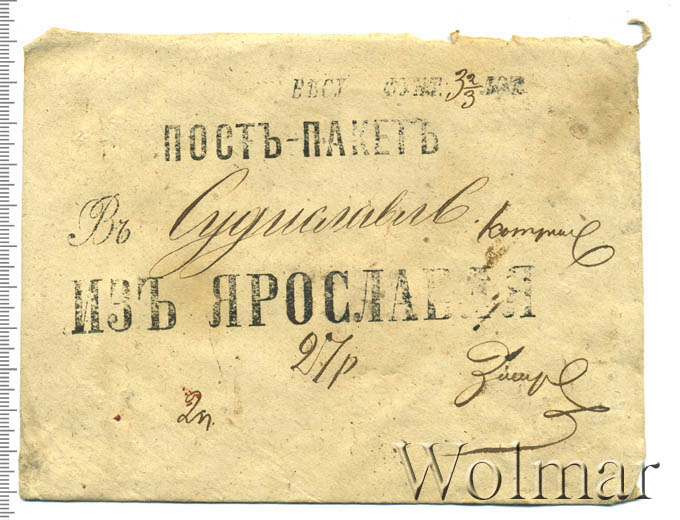 ВѢСУ ФУНТ. 3 2/3 ЛОТ.
ПОСТЪ-ПАКЕТЪ
Въ Судиславль
ИЗЪ ЯРОСЛАВЛЯ
27р
2п.
Wolmar